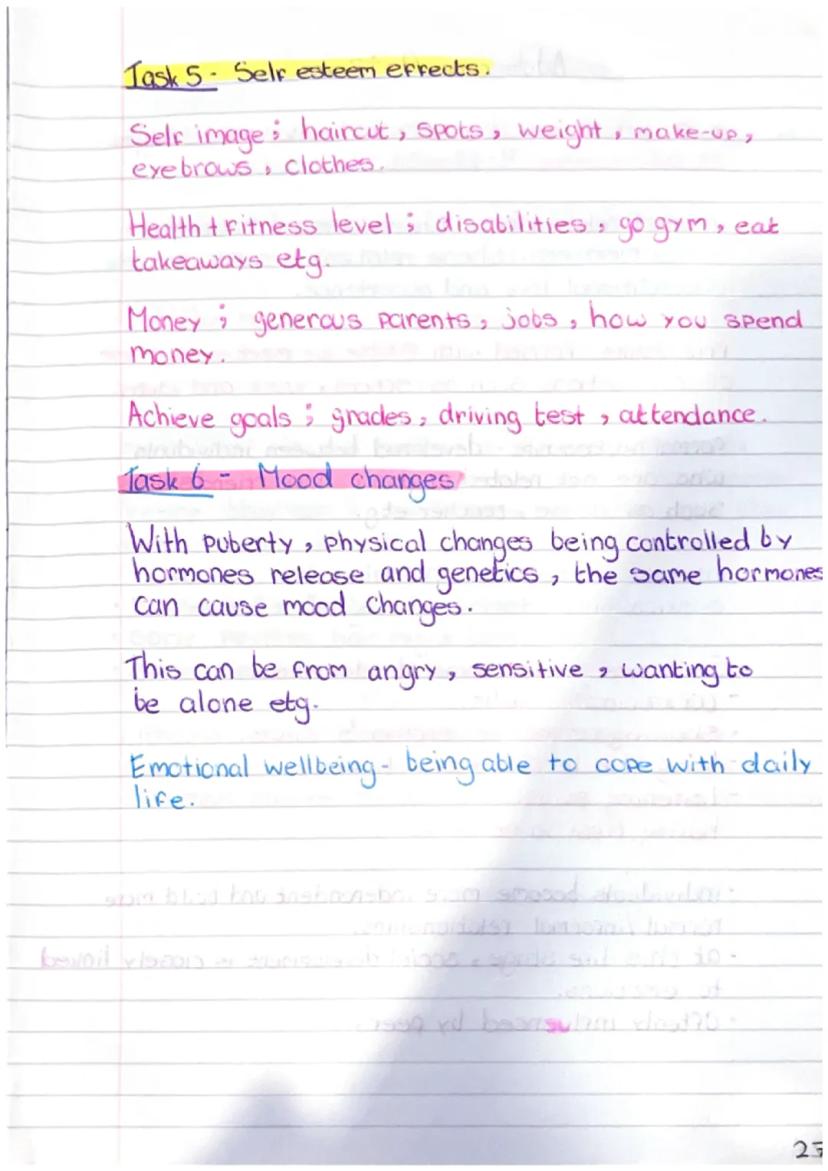 Task 5 - Self esteem effects.
Self image ; haircut, spots, weight, make-up,
eyebrows, clothes.
Health + fitness level ; disabilities, go gym, eat
takeaways etg.
Money ; generous parents, jobs, how you spend
money.
Achieve goals ; grades, driving test, attendance.
Task 6 - Mood changes
With puberty, physical changes being controlled by
hormones release and genetics, the same hormones
can cause mood changes.
This can be from angry, sensitive, wanting to
be alone etg.
Emotional wellbeing - being able to cope with daily
life.